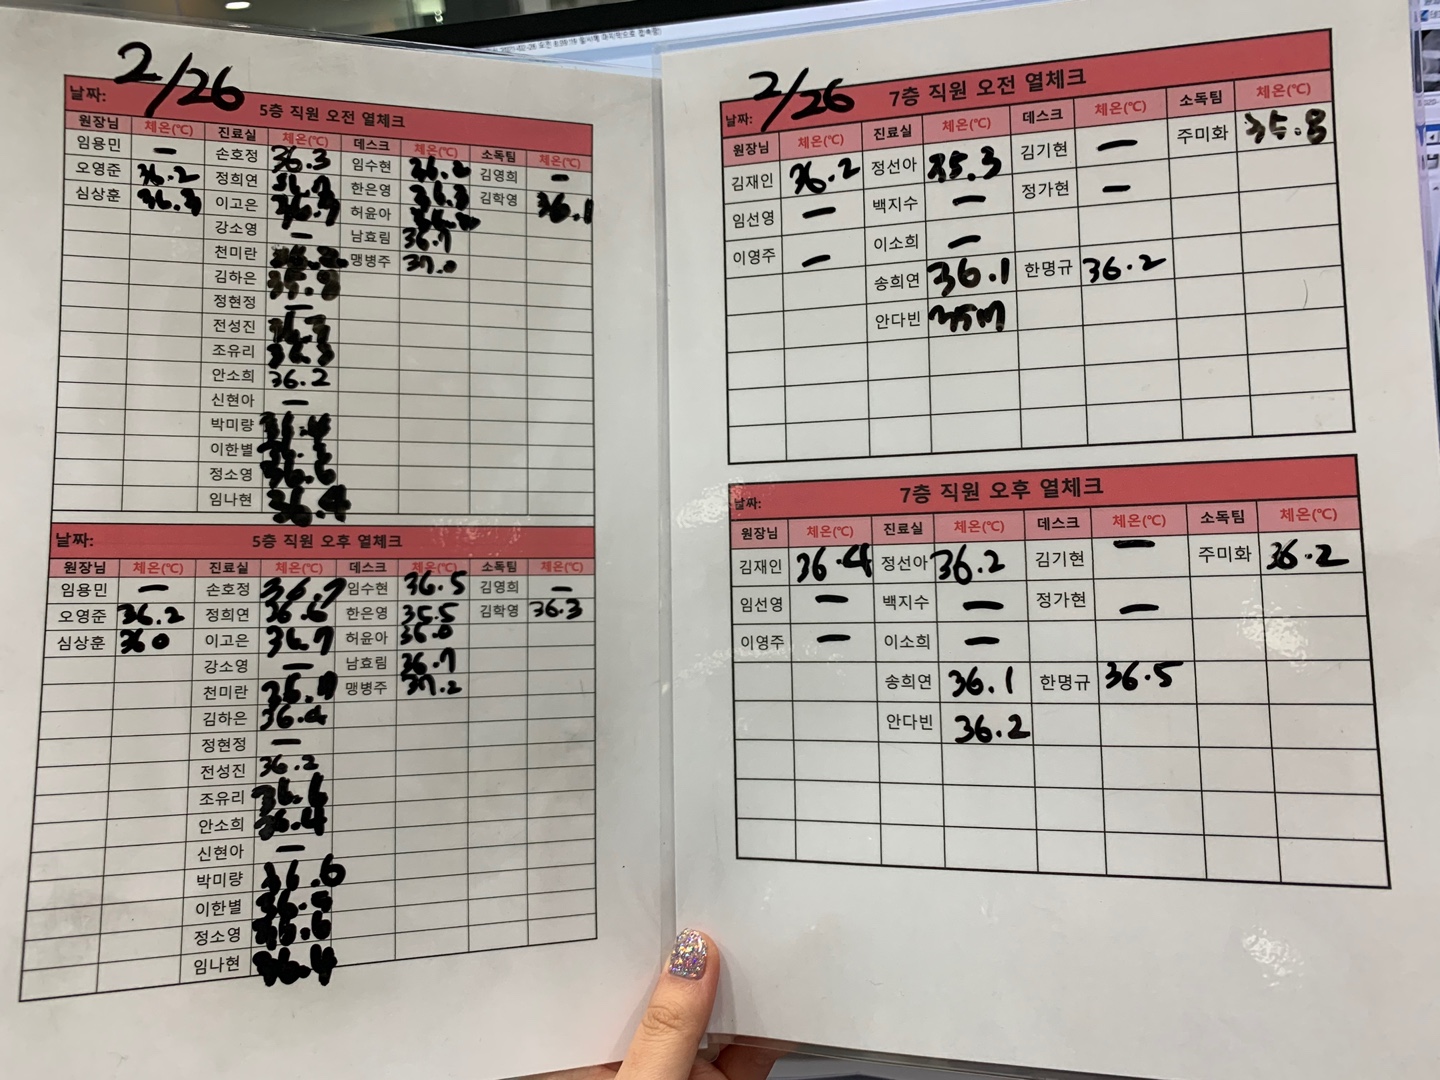 2/26
날짜: 5층 직원 오전 열체크
원장님 체온(℃) 진료실 체온(℃) 데스크 체온(℃) 소독팀 체온(℃)
임용민 — 손호정 36.3 임수현 36.2 김영희 —
오영준 36.2 정희연 한은영 김학영 36.1
심상훈 36.3 이고은 36.7 허윤아
강소영 — 남효림 36.7
천미란 맹병주 37.0
김하은 35.8
정현정 —
전성진
조유리 36.3
안소희 36.2
신현아 —
박미량
이한별
정소영 36.6
임나현 36.4
날짜: 5층 직원 오후 열체크
원장님 체온(℃) 진료실 체온(℃) 데스크 체온(℃) 소독팀 체온(℃)
임용민 — 손호정 36.7 임수현 36.5 김영희 —
오영준 36.2 정희연 36.6 한은영 35.5 김학영 36.3
심상훈 36 0 이고은 36.7 허윤아 36.0
강소영 — 남효림 36.7
천미란 맹병주 37.2
김하은 36.4
정현정 —
전성진 36.2
조유리 36.6
안소희 36.4
신현아 —
박미량
이한별
정소영
임나현 36.4
2/26
날짜: 7층 직원 오전 열체크
원장님 체온(℃) 진료실 체온(℃) 데스크 체온(℃) 소독팀 체온(℃)
김재인 36.2 정선아 35.3 김기현 — 주미화 35.8
임선영 — 백지수 — 정가현 —
이영주 — 이소희 —
송희연 36.1 한명규 36.2
안다빈
날짜: 7층 직원 오후 열체크
원장님 체온(℃) 진료실 체온(℃) 데스크 체온(℃) 소독팀 체온(℃)
김재인 36.4 정선아 36.2 김기현 — 주미화 36.2
임선영 — 백지수 — 정가현 —
이영주 — 이소희 —
송희연 36.1 한명규 36.5
안다빈 36.2